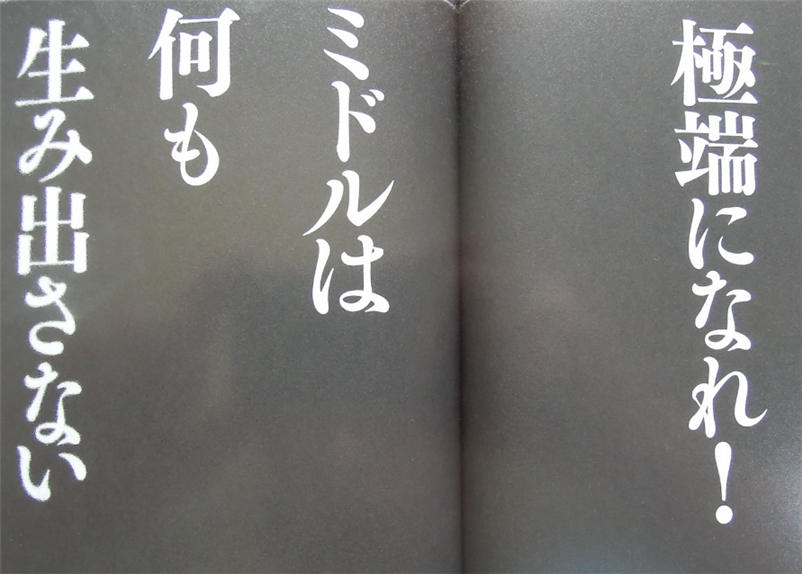 極端になれ!
ミドルは
何も
生み出さない